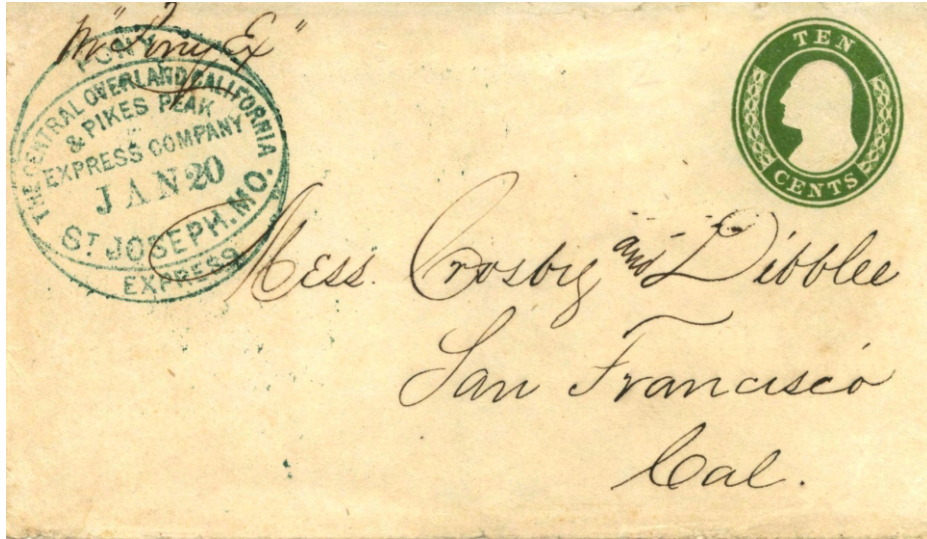 pr "Pony Ex"
PONY
THE CENTRAL OVERLAND CALIFORNIA
& PIKES PEAK
EXPRESS COMPANY
JAN 20
ST JOSEPH, MO.
EXPRESS
TEN
CENTS
Mess. Crosby and Dibblee
San Francisco
Cal.